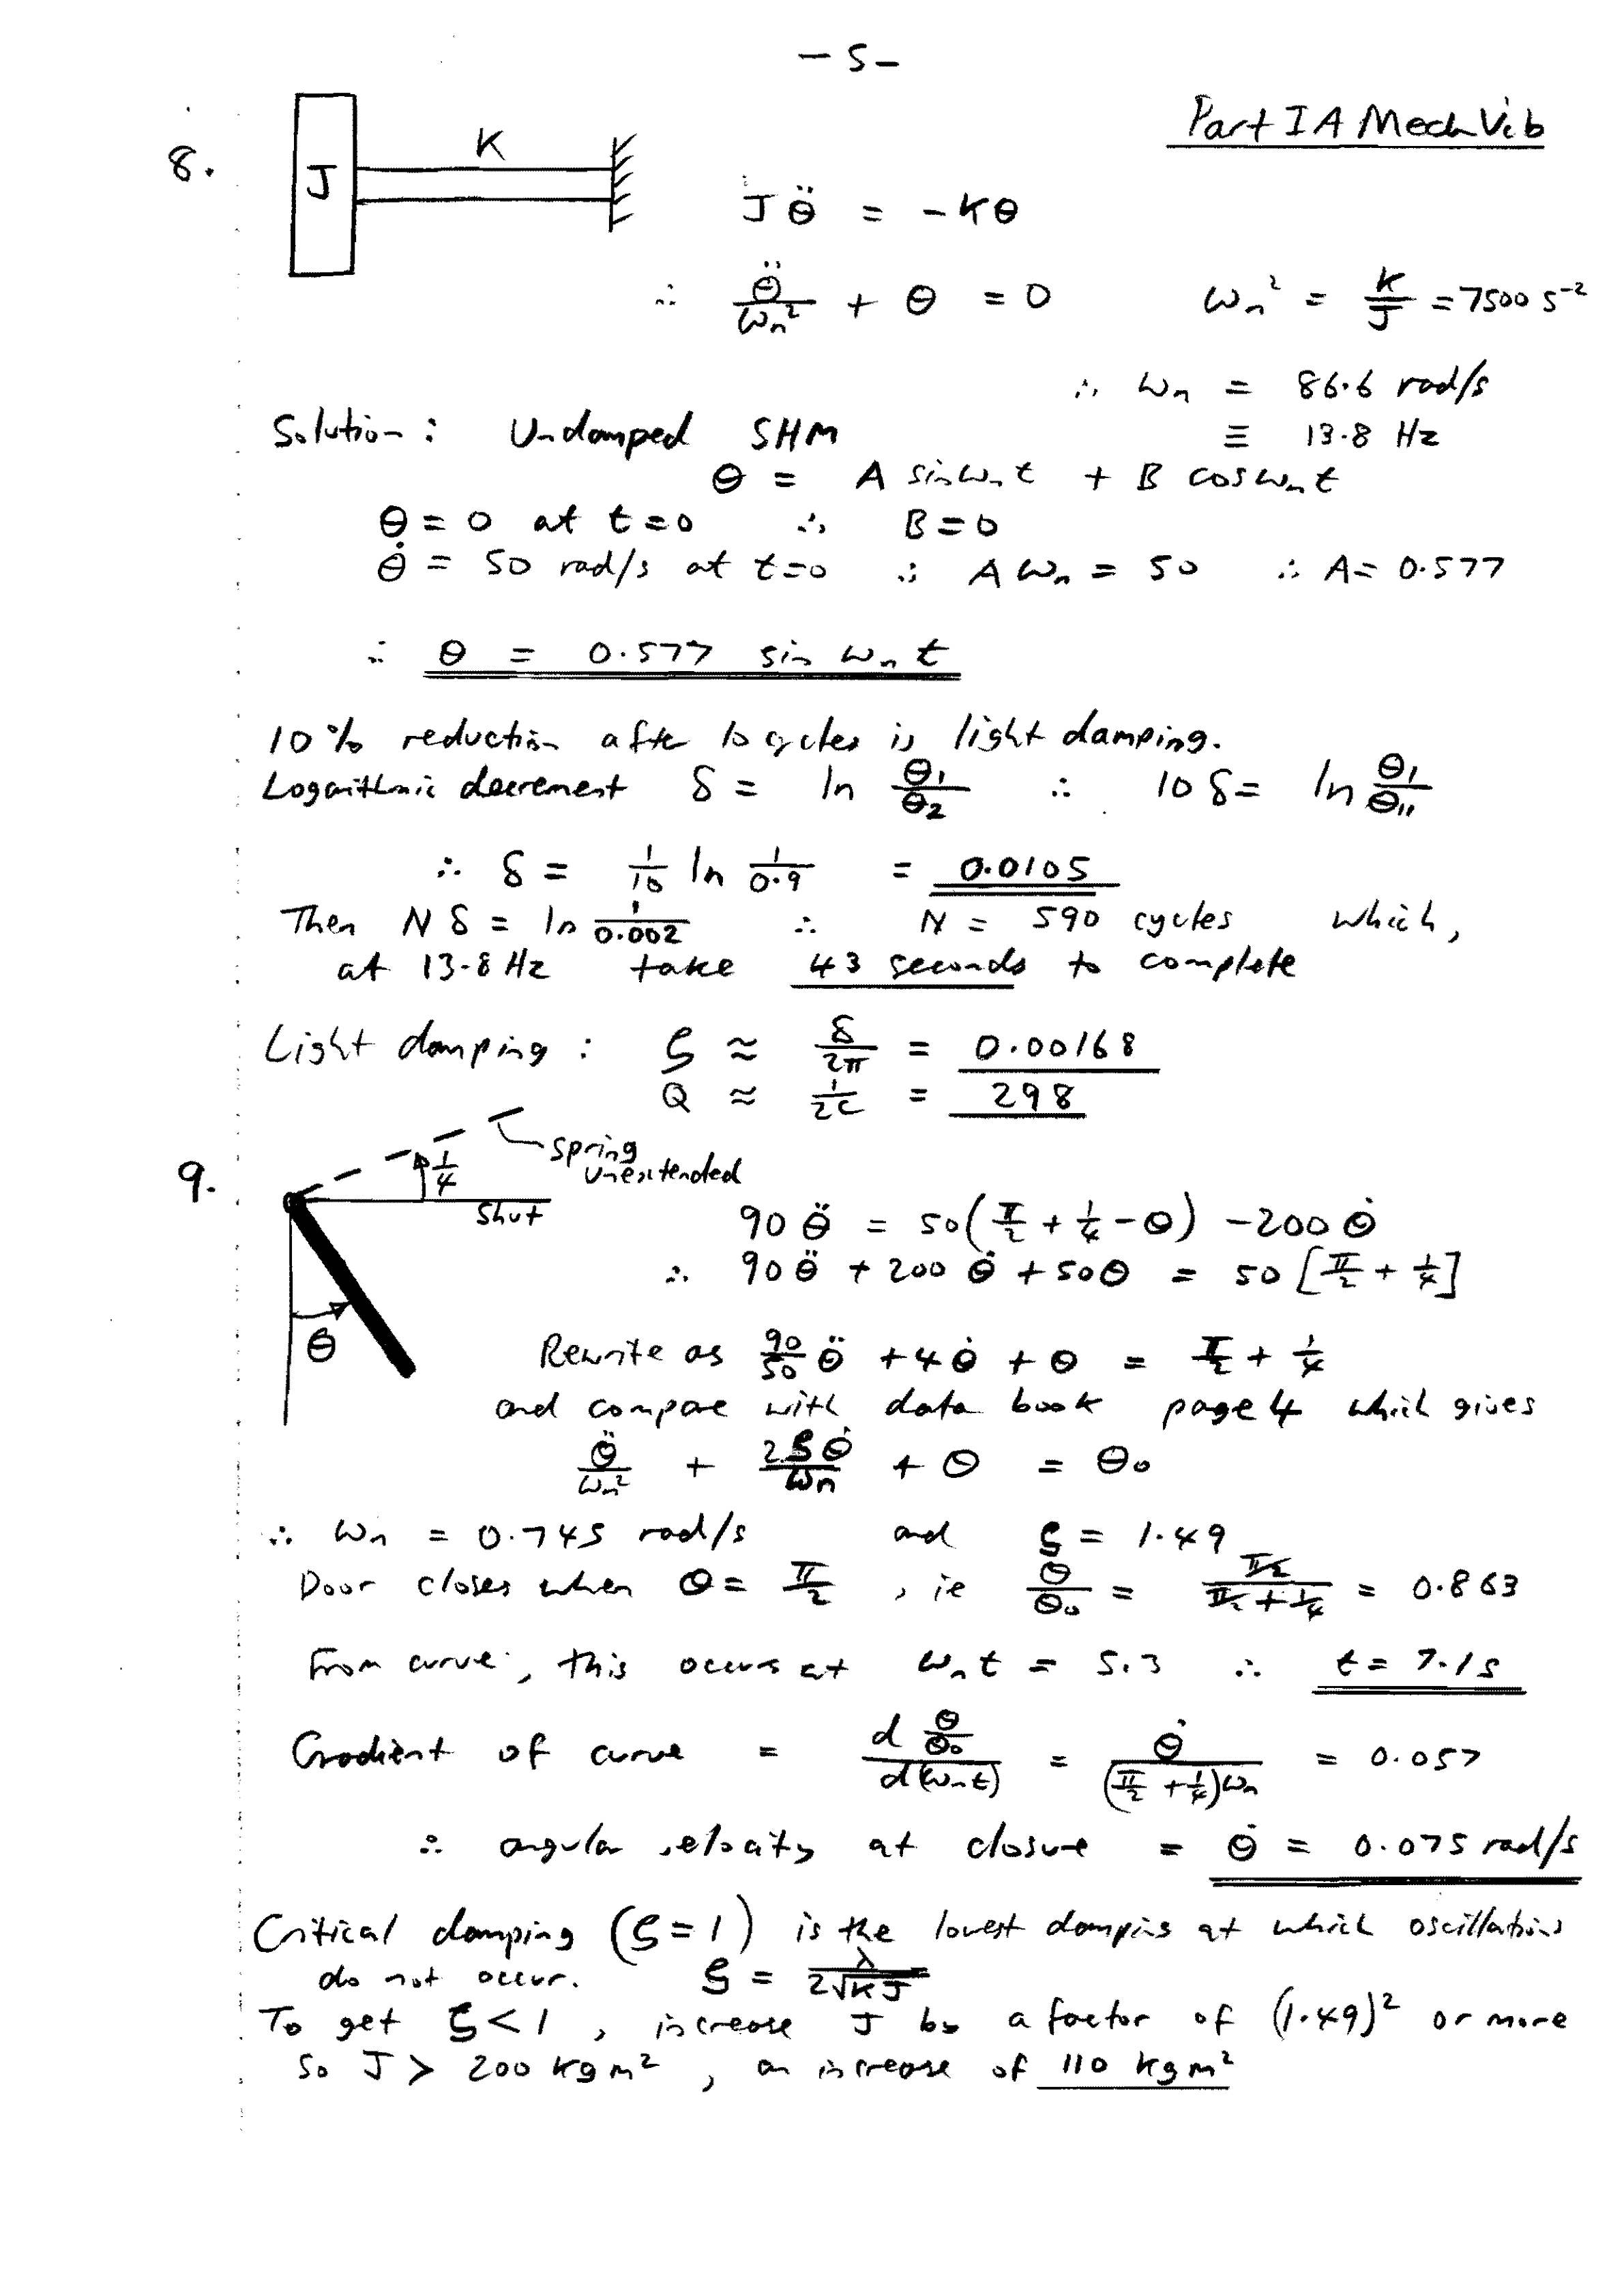 - 5 -
Part IA Mech Vib
8.
J
K
J θ̈ = - Kθ
∴ θ̈/ωn² + θ = 0 ωn² = K/J = 7500 s⁻²
∴ ωn = 86.6 rad/s
Solution: Undamped SHM ≡ 13.8 Hz
θ = A sin ωn t + B cos ωn t
θ = 0 at t=0 ∴ B=0
θ̇ = 50 rad/s at t=0 ∴ A ωn = 50 ∴ A = 0.577
∴ θ = 0.577 sin ωn t
10% reduction after 10 cycles is light damping.
Logarithmic decrement δ = ln θ₁/θ₂ ∴ 10 δ = ln θ₁/θ₁₁
∴ δ = 1/10 ln 1/0.9 = 0.0105
Then N δ = ln 1/0.002 ∴ N = 590 cycles which,
at 13.8 Hz take 43 seconds to complete
Light damping: ζ ≈ δ/2π = 0.00168
Q ≈ 1/2ζ = 298
9.
1/4
spring
unextended
shut
θ
90 θ̈ = 50(π/2 + 1/4 - θ) - 200 θ̇
∴ 90 θ̈ + 200 θ̇ + 50θ = 50 [π/2 + 1/4]
Rewrite as 90/50 θ̈ + 4θ̇ + θ = π/2 + 1/4
and compare with data book page 4 which gives
θ̈/ωn² + 2ζθ̇/ωn + θ = θ₀
∴ ωn = 0.745 rad/s and ζ = 1.49
Door closes when θ = π/2, ie θ/θ₀ = π/2/(π/2 + 1/4) = 0.863
From curve, this occurs at ωn t = 5.3 ∴ t = 7.1s
Gradient of curve = d θ/θ₀ / d(ωn t) = θ̇/((π/2 + 1/4)ωn) = 0.057
∴ angular velocity at closure = θ̇ = 0.075 rad/s
Critical damping (ζ = 1) is the lowest damping at which oscillations
do not occur. ζ = λ/2√KJ
To get ζ < 1, increase J by a factor of (1.49)² or more
so J > 200 kg m², an increase of 110 kg m²